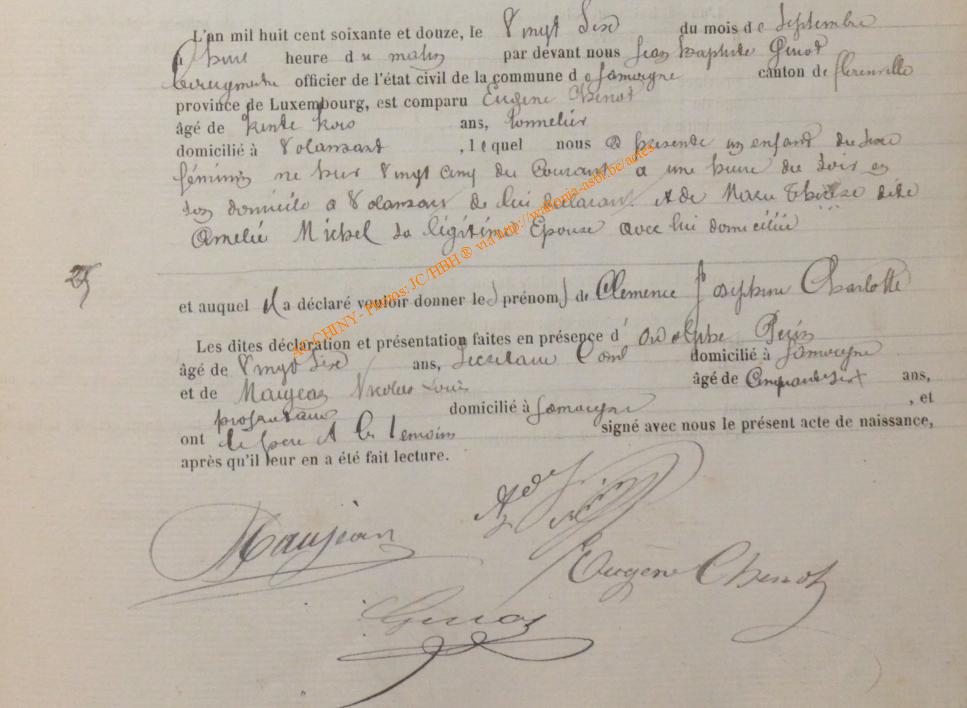 L'an mil huit cent soixante et douze, le Vingt Six du mois de Septembre
a huit heure du matin par devant nous Jean Baptiste Ginot
Bourgmestre officier de l'état civil de la commune de Jamoigne canton de florenville
province de Luxembourg, est comparu Eugene Chenot
âgé de trente trois ans, tonnelier
domicilié à Valansart , lequel nous a présenté un enfant du sexe
féminin né hier Vingt cinq du Courant a une heure du Soir en
son domicile a Valansart de lui déclarant et de Marie Thérèse dite
Amelie Michel sa légitime Epouse avec lui domiciliée
25
et auquel il a déclaré vouloir donner les prénoms de Clemence Josephine Charlotte
Les dites déclaration et présentation faites en présence d'Adolphe
âgé de Vingt Six ans, Secretaire Coml domicilié à Jamoigne
et de Maugean Nicolas Louis âgé de Cinquante six ans,
propriétaire domicilié à Jamoigne , et
ont le pere et les temoins signé avec nous le présent acte de naissance,
après qu'il leur en a été fait lecture.
Ad
Maujean
Eugène Chenot
Ginot
ARCCHINY- Photos:JC/HBH® via http://wallonia-asbl.be/actes